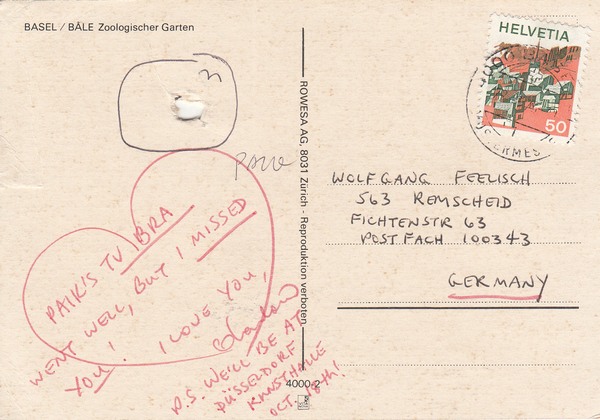 BASEL / BÂLE Zoologischer Garten
HELVETIA
50
ROWESA AG, 8031 Zürich - Reproduktion verboten
4000-2
PAIK'S TV BRA
WENT WELL, BUT I MISSED
YOU! I LOVE YOU,
P.S. WE'LL BE AT
DÜSSELDORF
KUNSTHALLE
OCT. 18TH!
WOLFGANG FEELISCH
563 REMSCHEID
FICHTENSTR 63
POSTFACH 100343
GERMANY